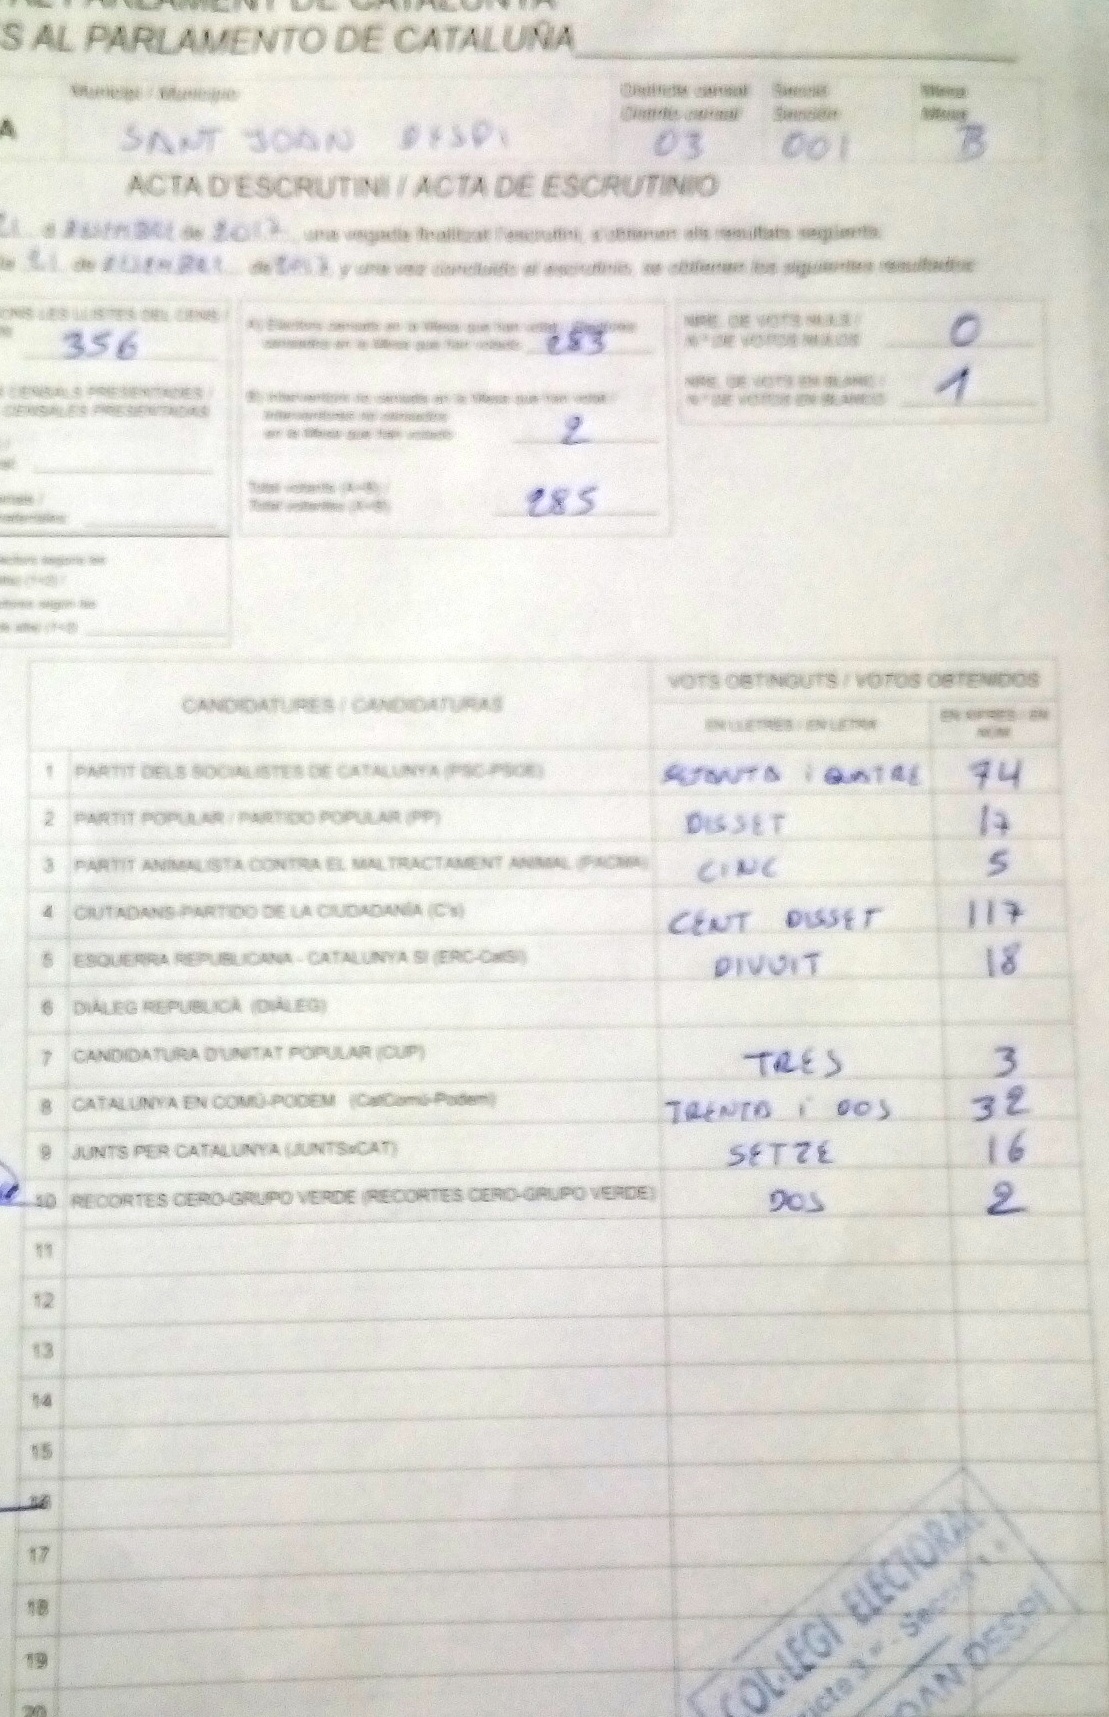 AL PARLAMENT DE CATALUNYA
S AL PARLAMENTO DE CATALUÑA
Municipi / Municipio
Districte censal Secció Mesa
Distrito censal Sección Mesa
A SANT JOAN DESPI 03 001 B
ACTA D'ESCRUTINI / ACTA DE ESCRUTINIO
21 de 2017, una vegada finalitzat l'escrutini, s'obtenen els resultats següents:
21 de de 2017 y una vez concluido el escrutinio, se obtienen los siguientes resultados:
LES LLISTES DEL CENS /
356
CENSALS PRESENTADES /
CENSALES PRESENTADAS
A) Electors censats en la Mesa que han votat / Electores
censados en la Mesa que han votado 283
B) Interventors no censats en la Mesa que han votat /
Interventores no censados
en la Mesa que han votado 2
Total votants (A+B) /
Total votantes (A+B) 285
NRE. DE VOTS NULS /
N.º DE VOTOS NULOS 0
NRE. DE VOTS EN BLANC /
N.º DE VOTOS EN BLANCO 1
CANDIDATURES / CANDIDATURAS
VOTS OBTINGUTS / VOTOS OBTENIDOS
EN LLETRES / EN LETRA
EN XIFRES / EN
NÚM
1 PARTIT DELS SOCIALISTES DE CATALUNYA (PSC-PSOE) SETANTA i QUATRE 74
2 PARTIT POPULAR / PARTIDO POPULAR (PP) DISSET 17
3 PARTIT ANIMALISTA CONTRA EL MALTRACTAMENT ANIMAL (PACMA) CINC 5
4 CIUTADANS-PARTIDO DE LA CIUDADANÍA (C's) CENT DISSET 117
5 ESQUERRA REPUBLICANA - CATALUNYA SI (ERC-CatSí) DIVUIT 18
6 DIÀLEG REPUBLICÀ (DIÀLEG)
7 CANDIDATURA D'UNITAT POPULAR (CUP) TRES 3
8 CATALUNYA EN COMÚ-PODEM (CatComú-Podem) TRENTA i DOS 32
9 JUNTS PER CATALUNYA (JUNTSxCAT) SETZE 16
10 RECORTES CERO-GRUPO VERDE (RECORTES CERO-GRUPO VERDE) DOS 2
11
12
13
14
15
16
17
18
19
20
COL·LEGI ELECTORAL
icte 3.er - Secció 1.ª
JOAN DESPI